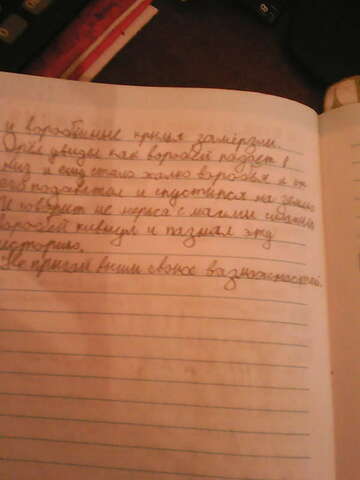 и воробьиные крылья замёрзли.
Орёл увидел как воробей падает в
низ и ему стало жалко воробья и он
его подхватил и спустился на землю
И говорит не мерься с маими силами
воробей кивнул и пазнал эту
историю.
Не прыгай выши своих вазможностей.